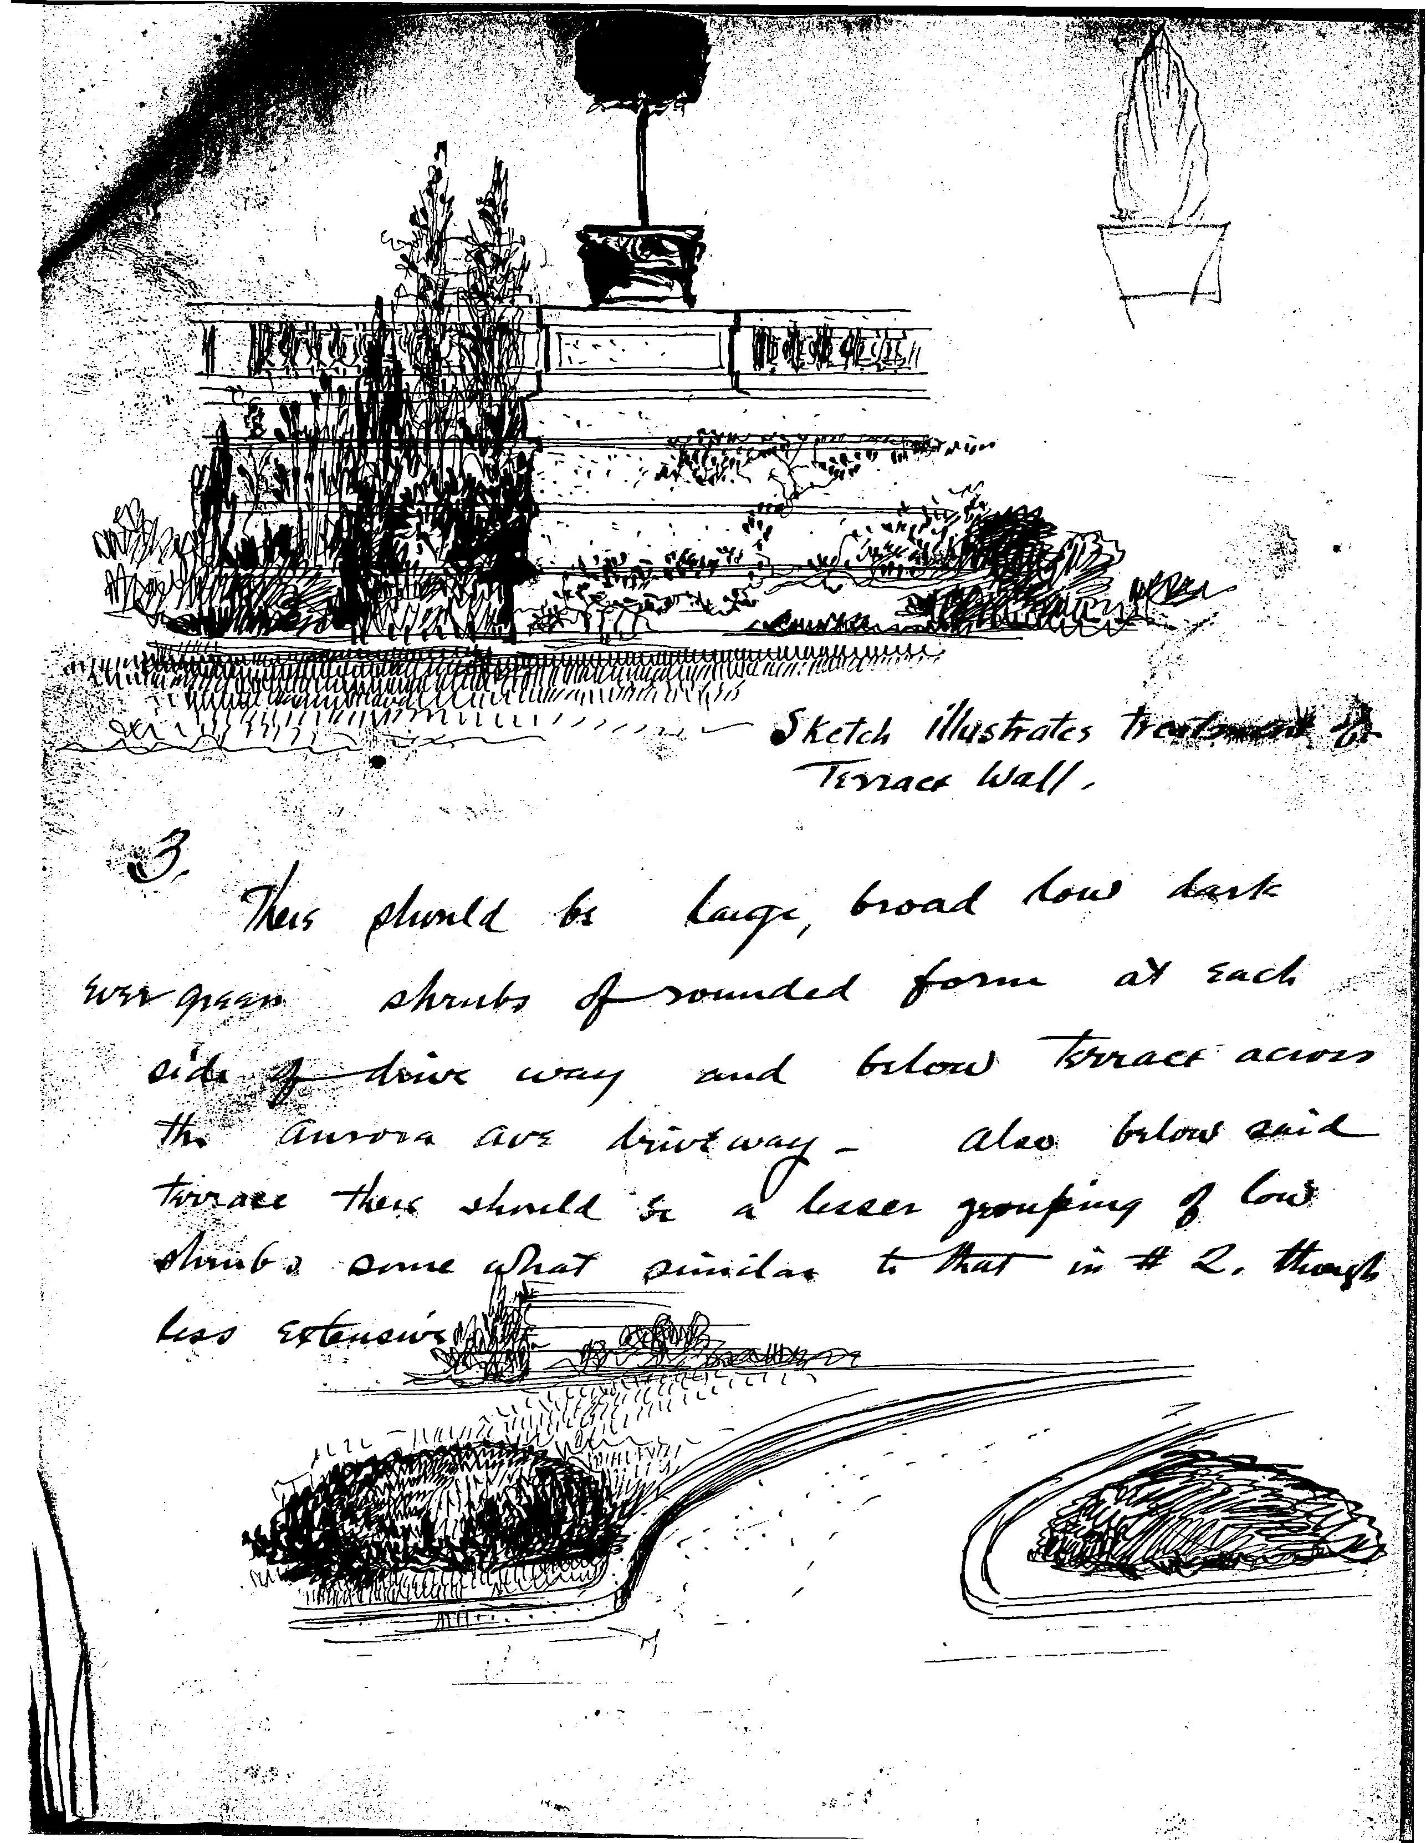 Sketch illustrates treatment of
Terrace Wall.
3.
There should be large, broad low dark
evergreen shrubs of rounded form at each
side of drive way and below terrace across
the Aurora Ave driveway - also below said
terrace there should be a lesser grouping of low
shrubs some what similar to that in # 2. though
less extensive